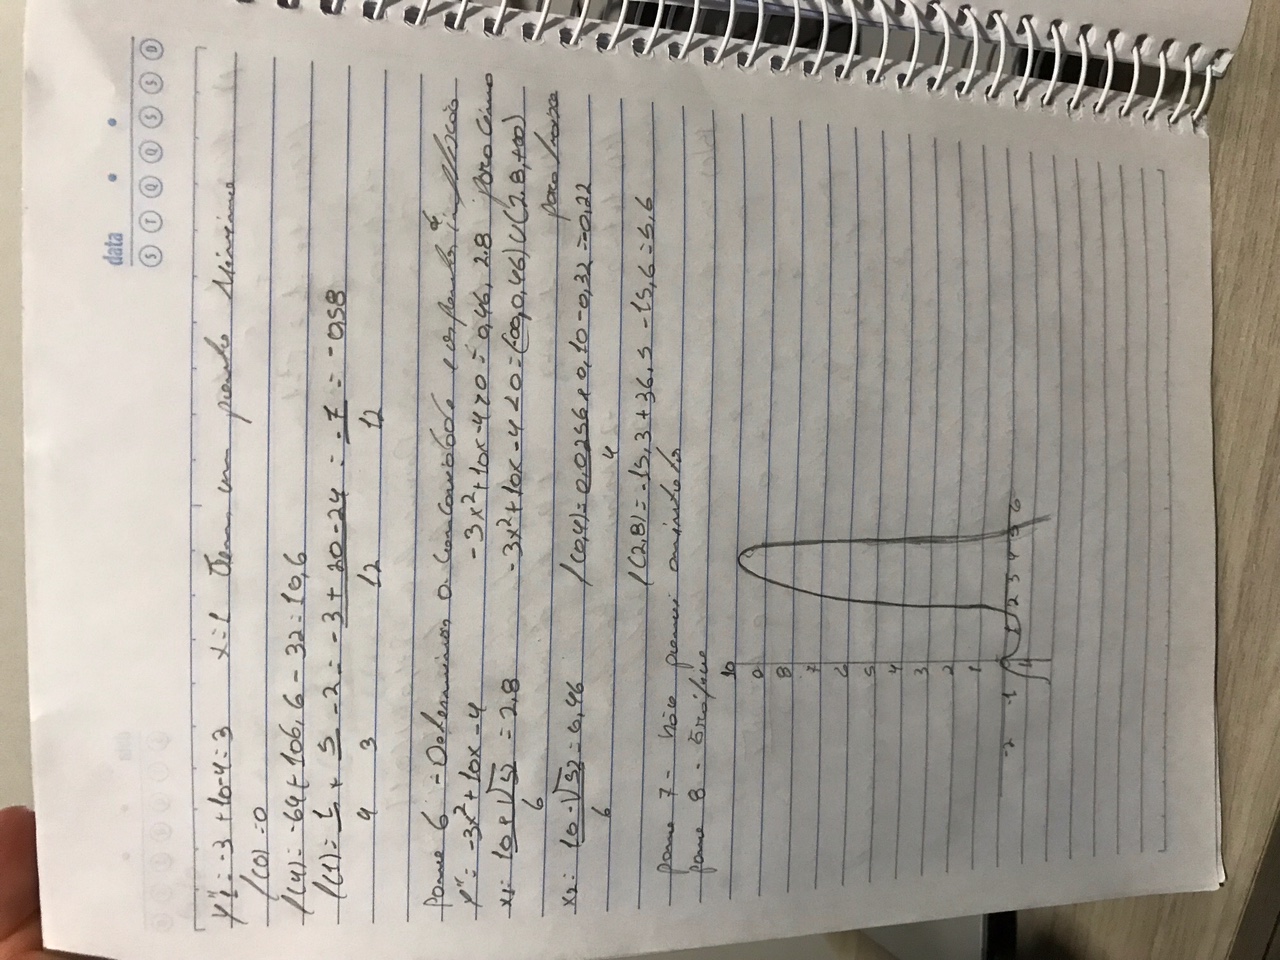 data
S T Q Q S S D
y''1 = -3 + 10 - 4 = 3 x = 1 Tem um ponto Mínimo
f(0) = 0
f(4) = -64 + 106,6 - 32 = 10,6
f(1) = 1/4 + 5/3 - 2 = -3 + 20 - 24/12 = -7/12 = -0,58
Passo 6 - Determinar a concavidade e os pontos de inflexão
y'' = -3x² + 10x - 4 -3x² + 10x - 4 > 0 = 0,46, 2.8 para cima
x1 = 10 + √52/6 = 2,8 -3x² + 10x - 4 < 0 = (-∞, 0,46) U (2.8, +∞)
para baixo
x2 = 10 - √52/6 = 0,46 f(0,4) = 0,0256/4 + 0,10 - 0,32 = -0,22
f(2,8) = -15,3 + 36,5 - 15,6 = 5,6
passo 7 - Não possui assintota
passo 8 - Gráfico
10
9
8
7
6
5
4
3
2
1
-2 -1 1 2 3 4 5 6